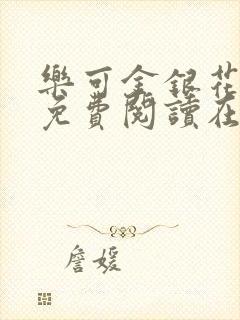 樂可金銀花
免費閱讀在
詹媛